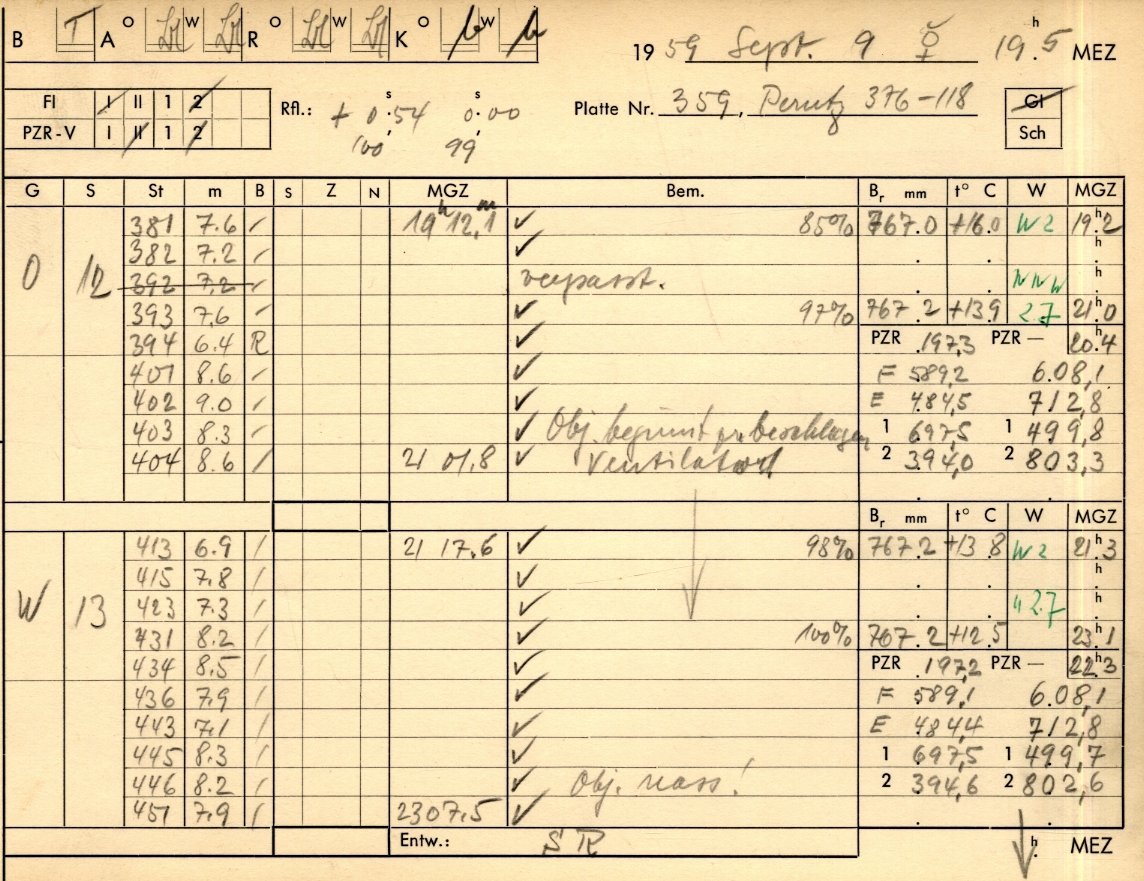 B T A O W R O W K O W
19 59 Sept. 9 ☿ 19 h 5 MEZ
FI I II 1 2 Rfl.: + 0 s 54 0 s 00 Platte Nr. 359, Perutz 376-118 Gl
PZR-V I II 1 2 100 99 Sch
G S St m B S Z N MGZ Bem. Br mm t° C W MGZ
381 7.6 / 19 h 12,1 m ✓ 85% 767.0 +16.0 W 2 19 h 2
382 7.2 / ✓ . . h
O 12 392 7.2 / verpasst. . . NNW h
393 7.6 / ✓ 97% 767.2 +13.9 2.7 21 h 0
394 6.4 R ✓ PZR 197,3 PZR — 20 h 4
401 8.6 / ✓ F 589,2 6.08,1
402 9.0 / ✓ E 484,5 712,8
403 8.3 / ✓ Obj. beginnt zu beschlagen 1 697,5 1 499,8
404 8.6 / 21 01,8 ✓ Ventilator! 2 394,0 2 803,3
Br mm t° C W MGZ
413 6.9 / 21 17.6 ✓ 98% 767.2 +13.8 W 2 21 h 3
415 7.8 / ✓ . . h
W 13 423 7.3 / ✓ . . " 2.7 h
431 8.2 / ✓ 100% 767.2 +12.5 23 h 1
434 8.5 / ✓ PZR 197,2 PZR — 22 h 3
436 7.9 / ✓ F 589,1 6.08,1
443 7.1 / ✓ E 484,4 712,8
445 8.3 / ✓ 1 697,5 1 499,7
446 8.2 / ✓ Obj. nass! 2 394,6 2 802,6
451 7.9 / 23 07.5 ✓
Entw.: S R h MEZ